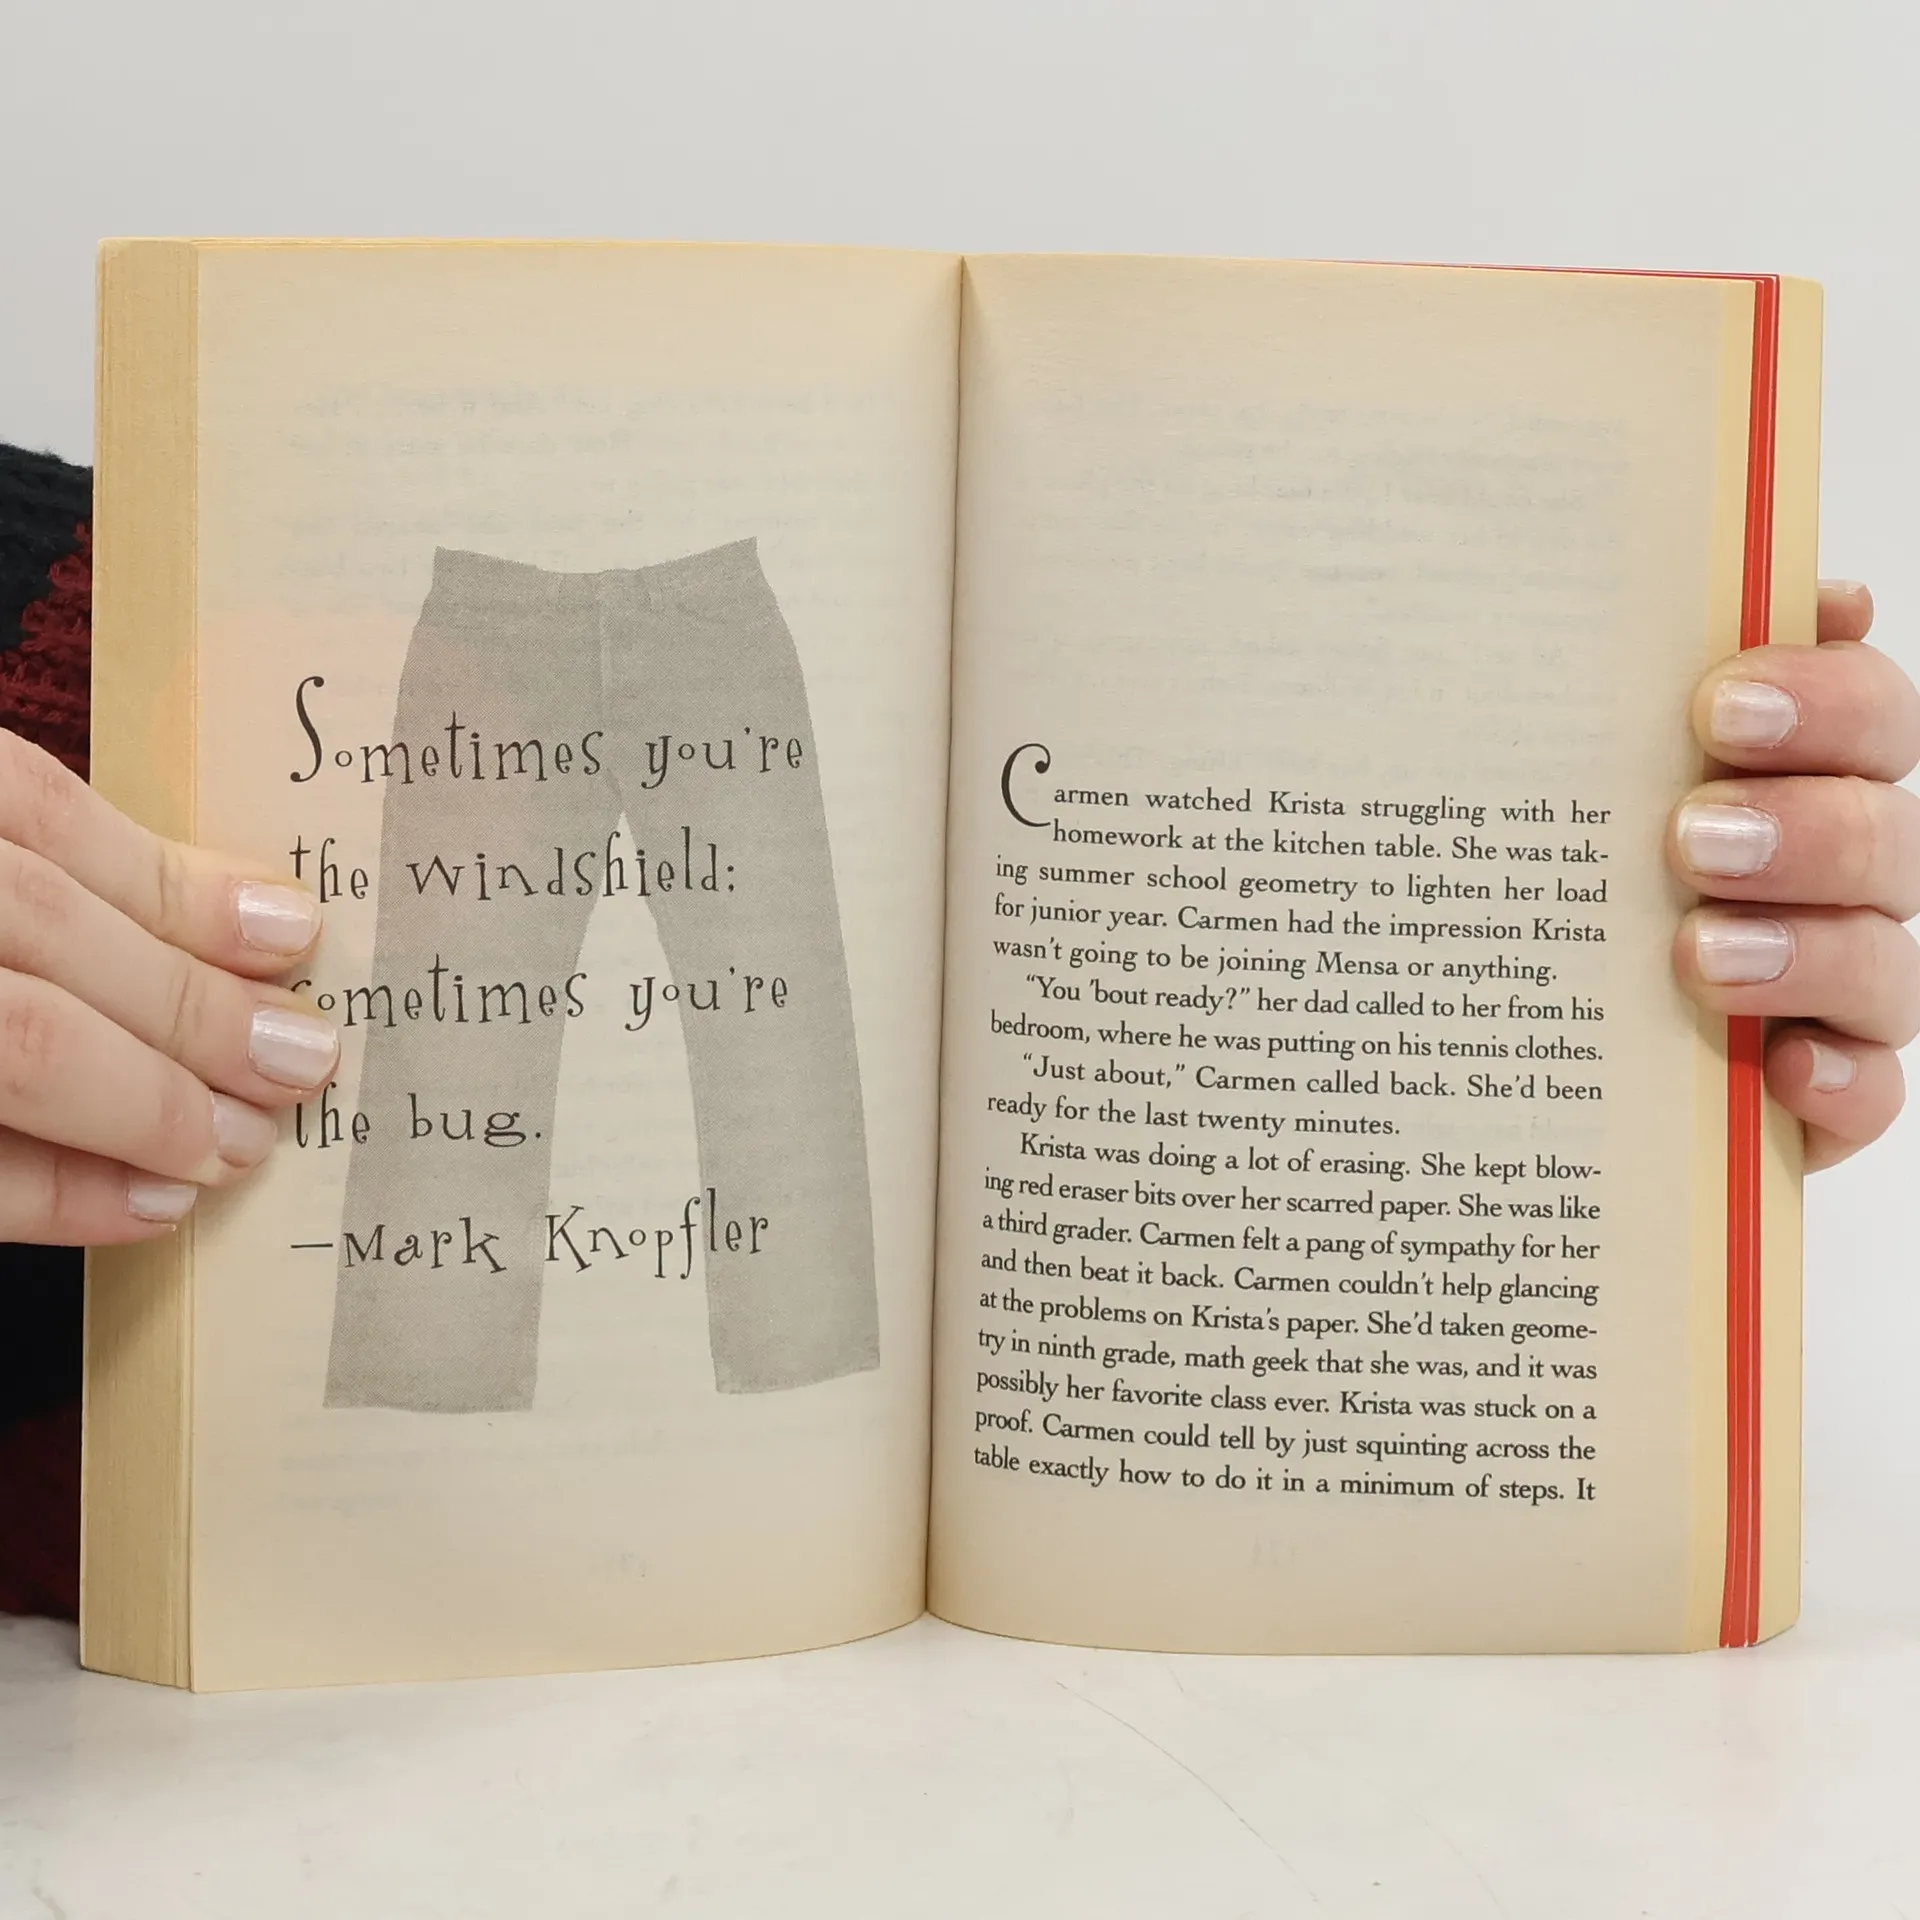 Sometimes you're
the windshield:
sometimes you're
the bug.
—Mark Knopfler
Carmen watched Krista struggling with her
homework at the kitchen table. She was tak-
ing summer school geometry to lighten her load
for junior year. Carmen had the impression Krista
wasn't going to be joining Mensa or anything.
"You 'bout ready?" her dad called to her from his
bedroom, where he was putting on his tennis clothes.
"Just about," Carmen called back. She'd been
ready for the last twenty minutes.
Krista was doing a lot of erasing. She kept blow-
ing red eraser bits over her scarred paper. She was like
a third grader. Carmen felt a pang of sympathy for her
and then beat it back. Carmen couldn't help glancing
at the problems on Krista's paper. She'd taken geome-
try in ninth grade, math geek that she was, and it was
possibly her favorite class ever. Krista was stuck on a
proof. Carmen could tell by just squinting across the
table exactly how to do it in a minimum of steps. It